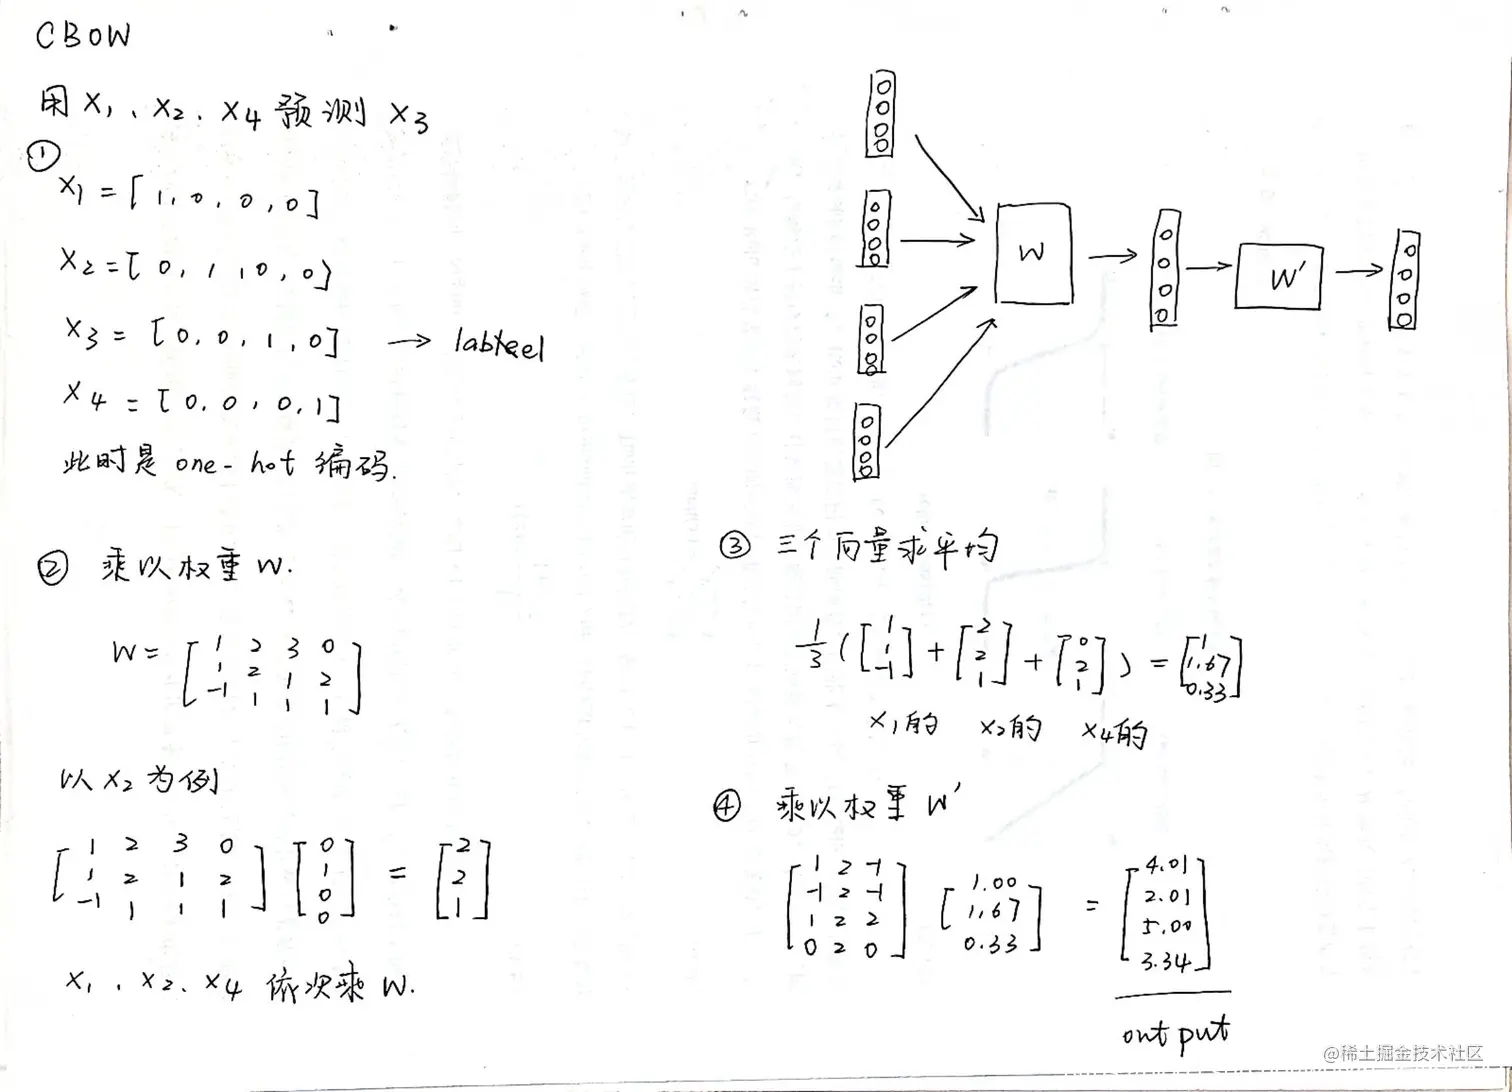 CBOW
用 X₁、X₂、X₄ 预测 X₃
①
X₁ = [1,0,0,0]
X₂ = [0,1,0,0]
X₃ = [0,0,1,0] →
X₄ = [0,0,0,1]
此时是 one-hot 编码.
② 乘以权重 W.
W = [
1 2 3 0
1 2 1 2
-1 1 1 1
]
以 X₂ 为例
[
1 2 3 0
1 2 1 2
-1 1 1 1
] [
0
1
0
0
] = [
2
2
1
]
X₁、X₂、X₄ 依次乘 W.
W
W'
③ 三个向量求平均
1/3 ( [
1
1
-1
] + [
2
2
1
] + [
0
2
1
] ) = [
1
1.67
0.33
]
X₁的 X₂的 X₄的
④ 乘以权重 W'
[
1 2 -1
-1 2 -1
1 2 2
0 2 0
] [
1.00
1.67
0.33
] = [
4.01
2.01
5.00
3.34
]
output
@稀土掘金技术社区